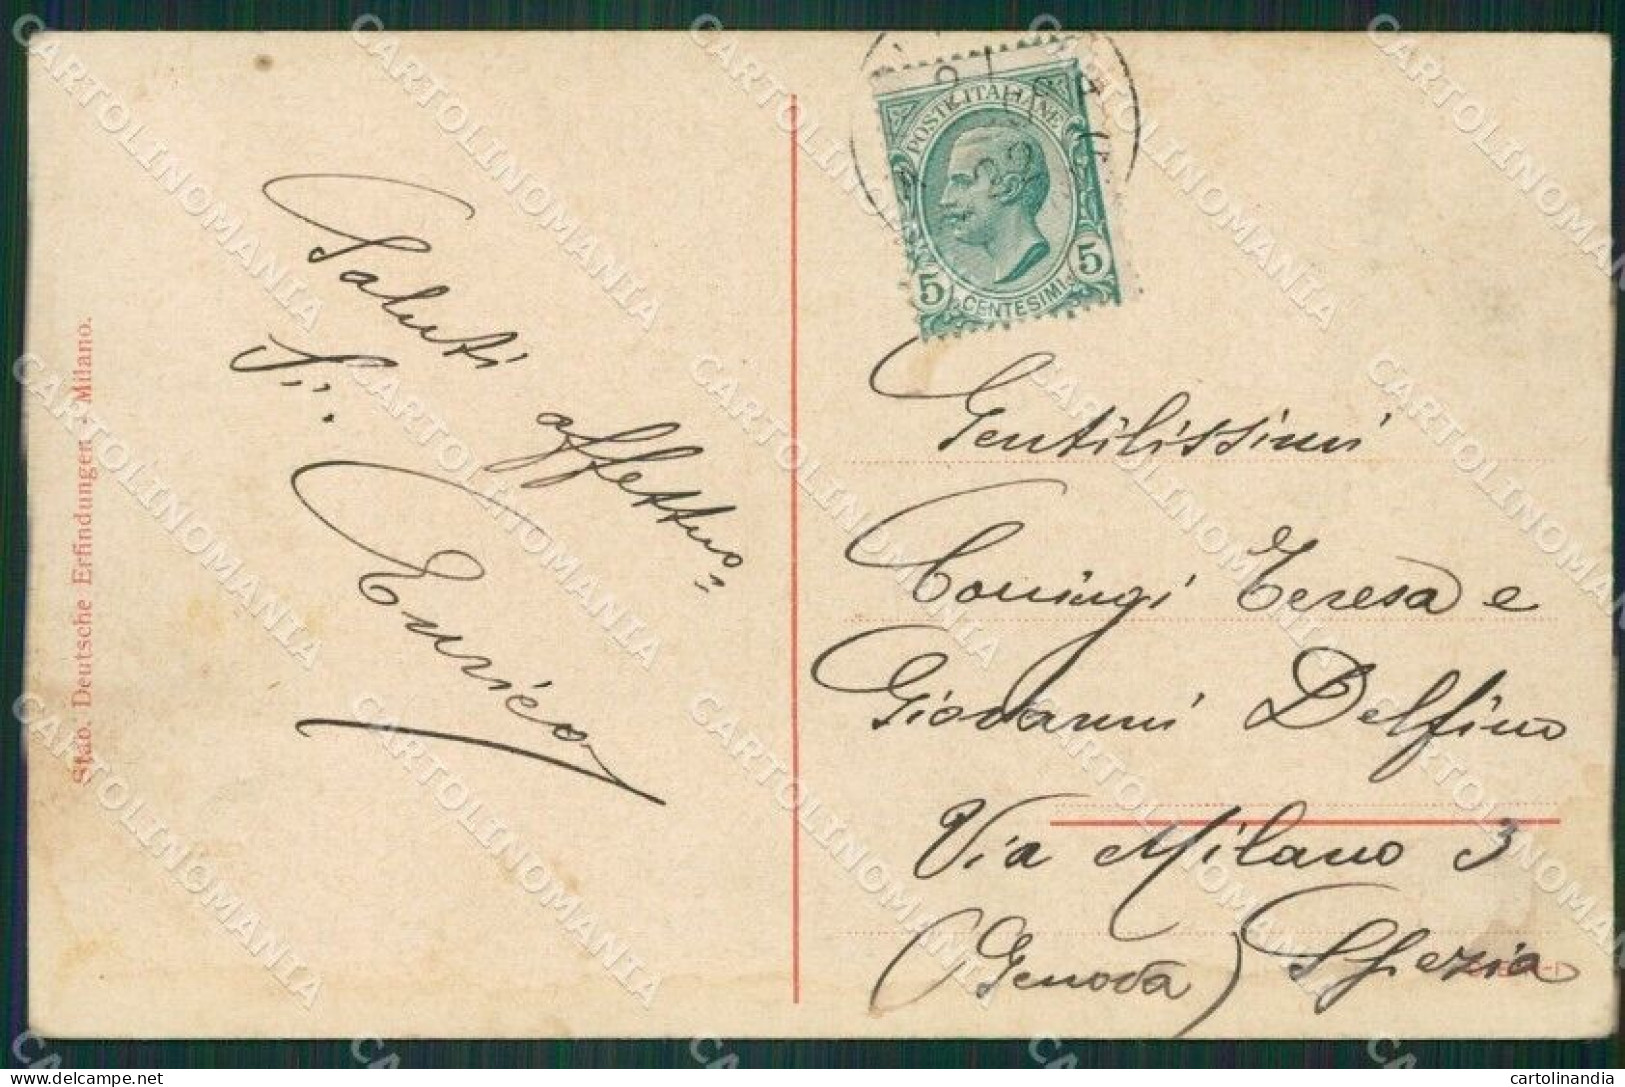 Stab. Deutsche Erfindungen - Milano.
Saluti affettuo=
si.
Enrico
POSTE ITALIANE
5 5
CENTESIMI
Gentilissimi
Teresa e
Giovanni Delfino
Via Milano 3
(Genova) Spezia
CARTOLINOMANIA
delcampe.net
cartolinandia